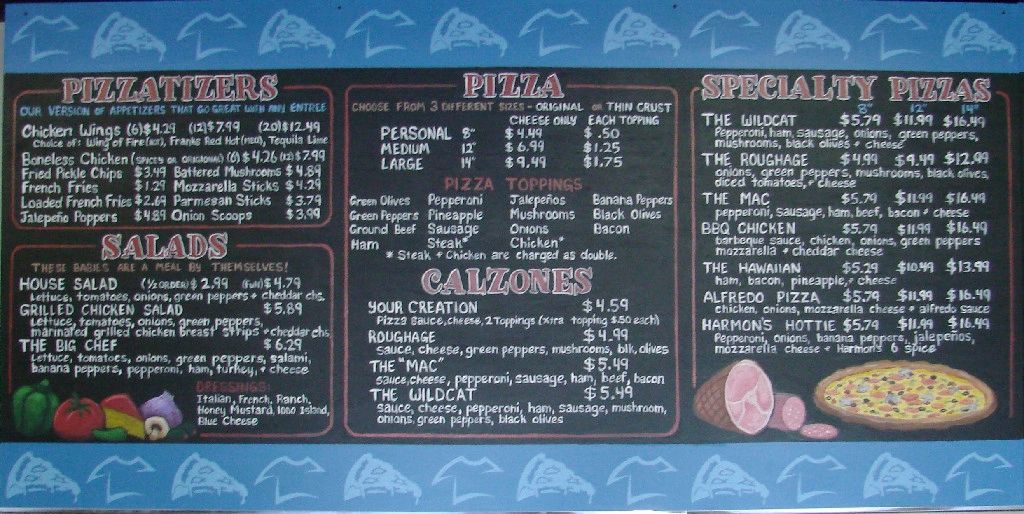 PIZZATIZERS
OUR VERSION OF APPETIZERS THAT GO GREAT WITH ANY ENTREE
Chicken Wings (6) $4.29 (12) $7.99 (20) $12.49
Choice of: Wing of Fire (HOT), Franks Red Hot (MED), Tequila Lime
Boneless Chicken (SPICES OR ORIGINAL) (6) $4.26 (12) $7.99
Fried Pickle Chips $3.49 Battered Mushrooms $4.89
French Fries $1.29 Mozzarella Sticks $4.29
Loaded French Fries $2.64 Parmesan Sticks $3.79
Jalapeño Poppers $4.89 Onion Scoops $3.99
SALADS
THESE BABIES ARE A MEAL BY THEMSELVES!
HOUSE SALAD (½ ORDER) $2.99 (Full) $4.79
Lettuce, tomatoes, onions, green peppers + cheddar chs.
GRILLED CHICKEN SALAD $5.89
Lettuce, tomatoes, onions, green peppers,
marinated grilled chicken breast strips + cheddar chs
THE BIG CHEF $6.29
Lettuce, tomatoes, onions, green peppers, salami,
banana peppers, pepperoni, ham, turkey, + cheese
DRESSINGS:
Italian, French, Ranch,
Honey Mustard, 1000 Island,
Blue Cheese
PIZZA
CHOOSE FROM 3 DIFFERENT SIZES - ORIGINAL or THIN CRUST
CHEESE ONLY EACH TOPPING
PERSONAL 8" $4.49 $.50
MEDIUM 12" $6.99 $1.25
LARGE 14" $9.49 $1.75
PIZZA TOPPINGS
Green Olives Pepperoni Jalepeños Banana Peppers
Green Peppers Pineapple Mushrooms Black Olives
Ground Beef Sausage Onions Bacon
Ham Steak* Chicken*
* Steak + Chicken are charged as double.
CALZONES
YOUR CREATION $4.59
Pizza Sauce, cheese, 2 Toppings (xtra topping $.50 each)
ROUGHAGE $4.99
sauce, cheese, green peppers, mushrooms, blk. olives
THE "MAC" $5.49
sauce, cheese, pepperoni, sausage, ham, beef, bacon
THE WILDCAT $5.49
sauce, cheese, pepperoni, ham, sausage, mushroom,
onions, green peppers, black olives
SPECIALTY PIZZAS
8" 12" 14"
THE WILDCAT $5.79 $11.99 $16.49
Pepperoni, ham, sausage, onions, green peppers,
mushrooms, black olives + cheese
THE ROUGHAGE $4.99 $9.49 $12.99
onions, green peppers, mushrooms, black olives,
diced tomatoes, + cheese
THE MAC $5.79 $11.99 $16.49
pepperoni, sausage, ham, beef, bacon + cheese
BBQ CHICKEN $5.79 $11.99 $16.49
barbeque sauce, chicken, onions, green peppers
mozzarella + cheddar cheese
THE HAWAIIAN $5.29 $10.49 $13.99
ham, bacon, pineapple, + cheese
ALFREDO PIZZA $5.79 $11.99 $16.49
chicken, onions, mozzarella cheese + alfredo sauce
HARMON'S HOTTIE $5.79 $11.99 $16.49
Pepperoni, onions, banana peppers, jalepeños,
mozzarella cheese + Harmon's 6 spice